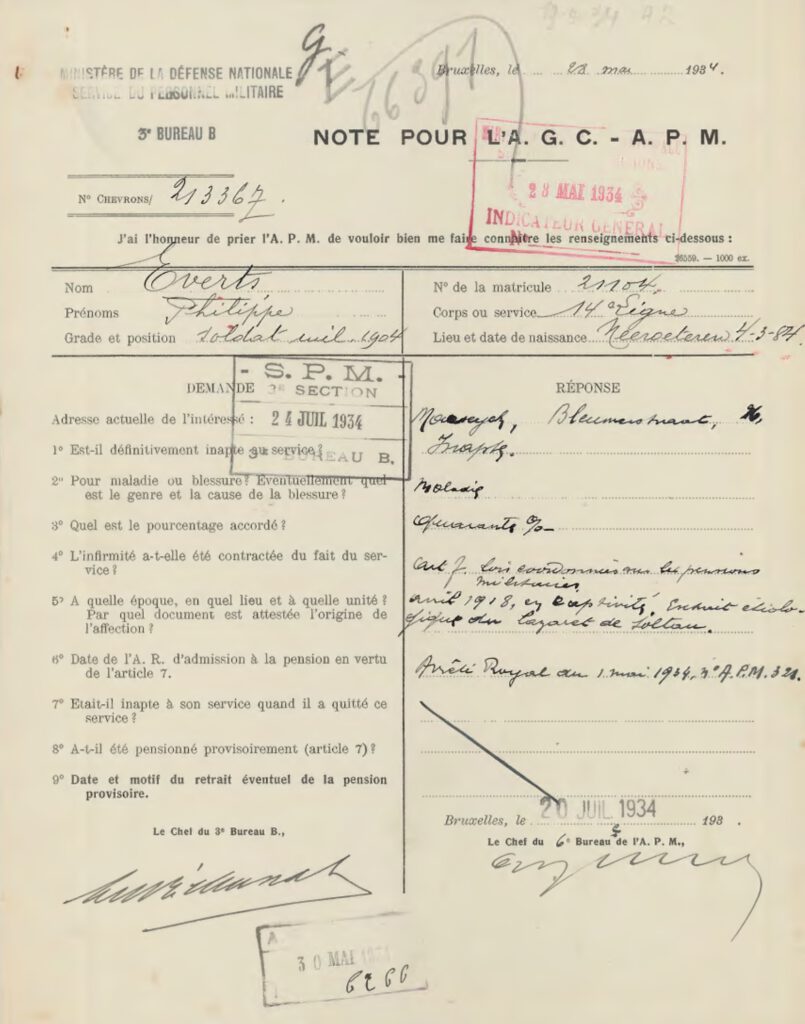 MINISTÈRE DE LA DÉFENSE NATIONALE
SERVICE DU PERSONNEL MILITAIRE
3e BUREAU B
66391
Bruxelles, le 23 mai 1934.
NOTE POUR L'A. G. C. - A. P. M.
No CHEVRONS/ 213367.
23 MAI 1934
INDICATEUR GENERAL
No
J'ai l'honneur de prier l'A. P. M. de vouloir bien me faire connaître les renseignements ci-dessous :
26559. — 1000 ex.
Nom Everts
Prénoms Philippe
Grade et position soldat mil. 1904
No de la matricule 21104.
Corps ou service 14e Ligne
Lieu et date de naissance Neeroeteren 4-3-84
- S. P. M. -
3e SECTION
24 JUIL 1934
3e BUREAU B.
DEMANDE
RÉPONSE
Adresse actuelle de l'intéressé :
Maeseyck, Bleumerstraat,
1o Est-il définitivement inapte au service ?
Inapte.
2o Pour maladie ou blessure ? Eventuellement quel
est le genre et la cause de la blessure ?
Maladie
3o Quel est le pourcentage accordé ?
Quarante %
4o L'infirmité a-t-elle été contractée du fait du ser-
vice ?
Art 7. lois coordonnées sur les pensions
militaires
5o A quelle époque, en quel lieu et à quelle unité ?
Par quel document est attestée l'origine de
l'affection ?
avril 1918, en captivité. Extrait étiolo-
gique du lazaret de Soltau.
6o Date de l'A. R. d'admission à la pension en vertu
de l'article 7.
Arrêté Royal du 1 mai 1934, no A.P.M. 321.
7o Etait-il inapte à son service quand il a quitté ce
service ?
8o A-t-il été pensionné provisoirement (article 7) ?
9o Date et motif du retrait éventuel de la pension
provisoire.
Le Chef du 3e Bureau B.,
Bruxelles, le 20 JUIL 1934 193 .
Le Chef du 6e Bureau de l'A. P. M.,
30 MAI 1934
6266